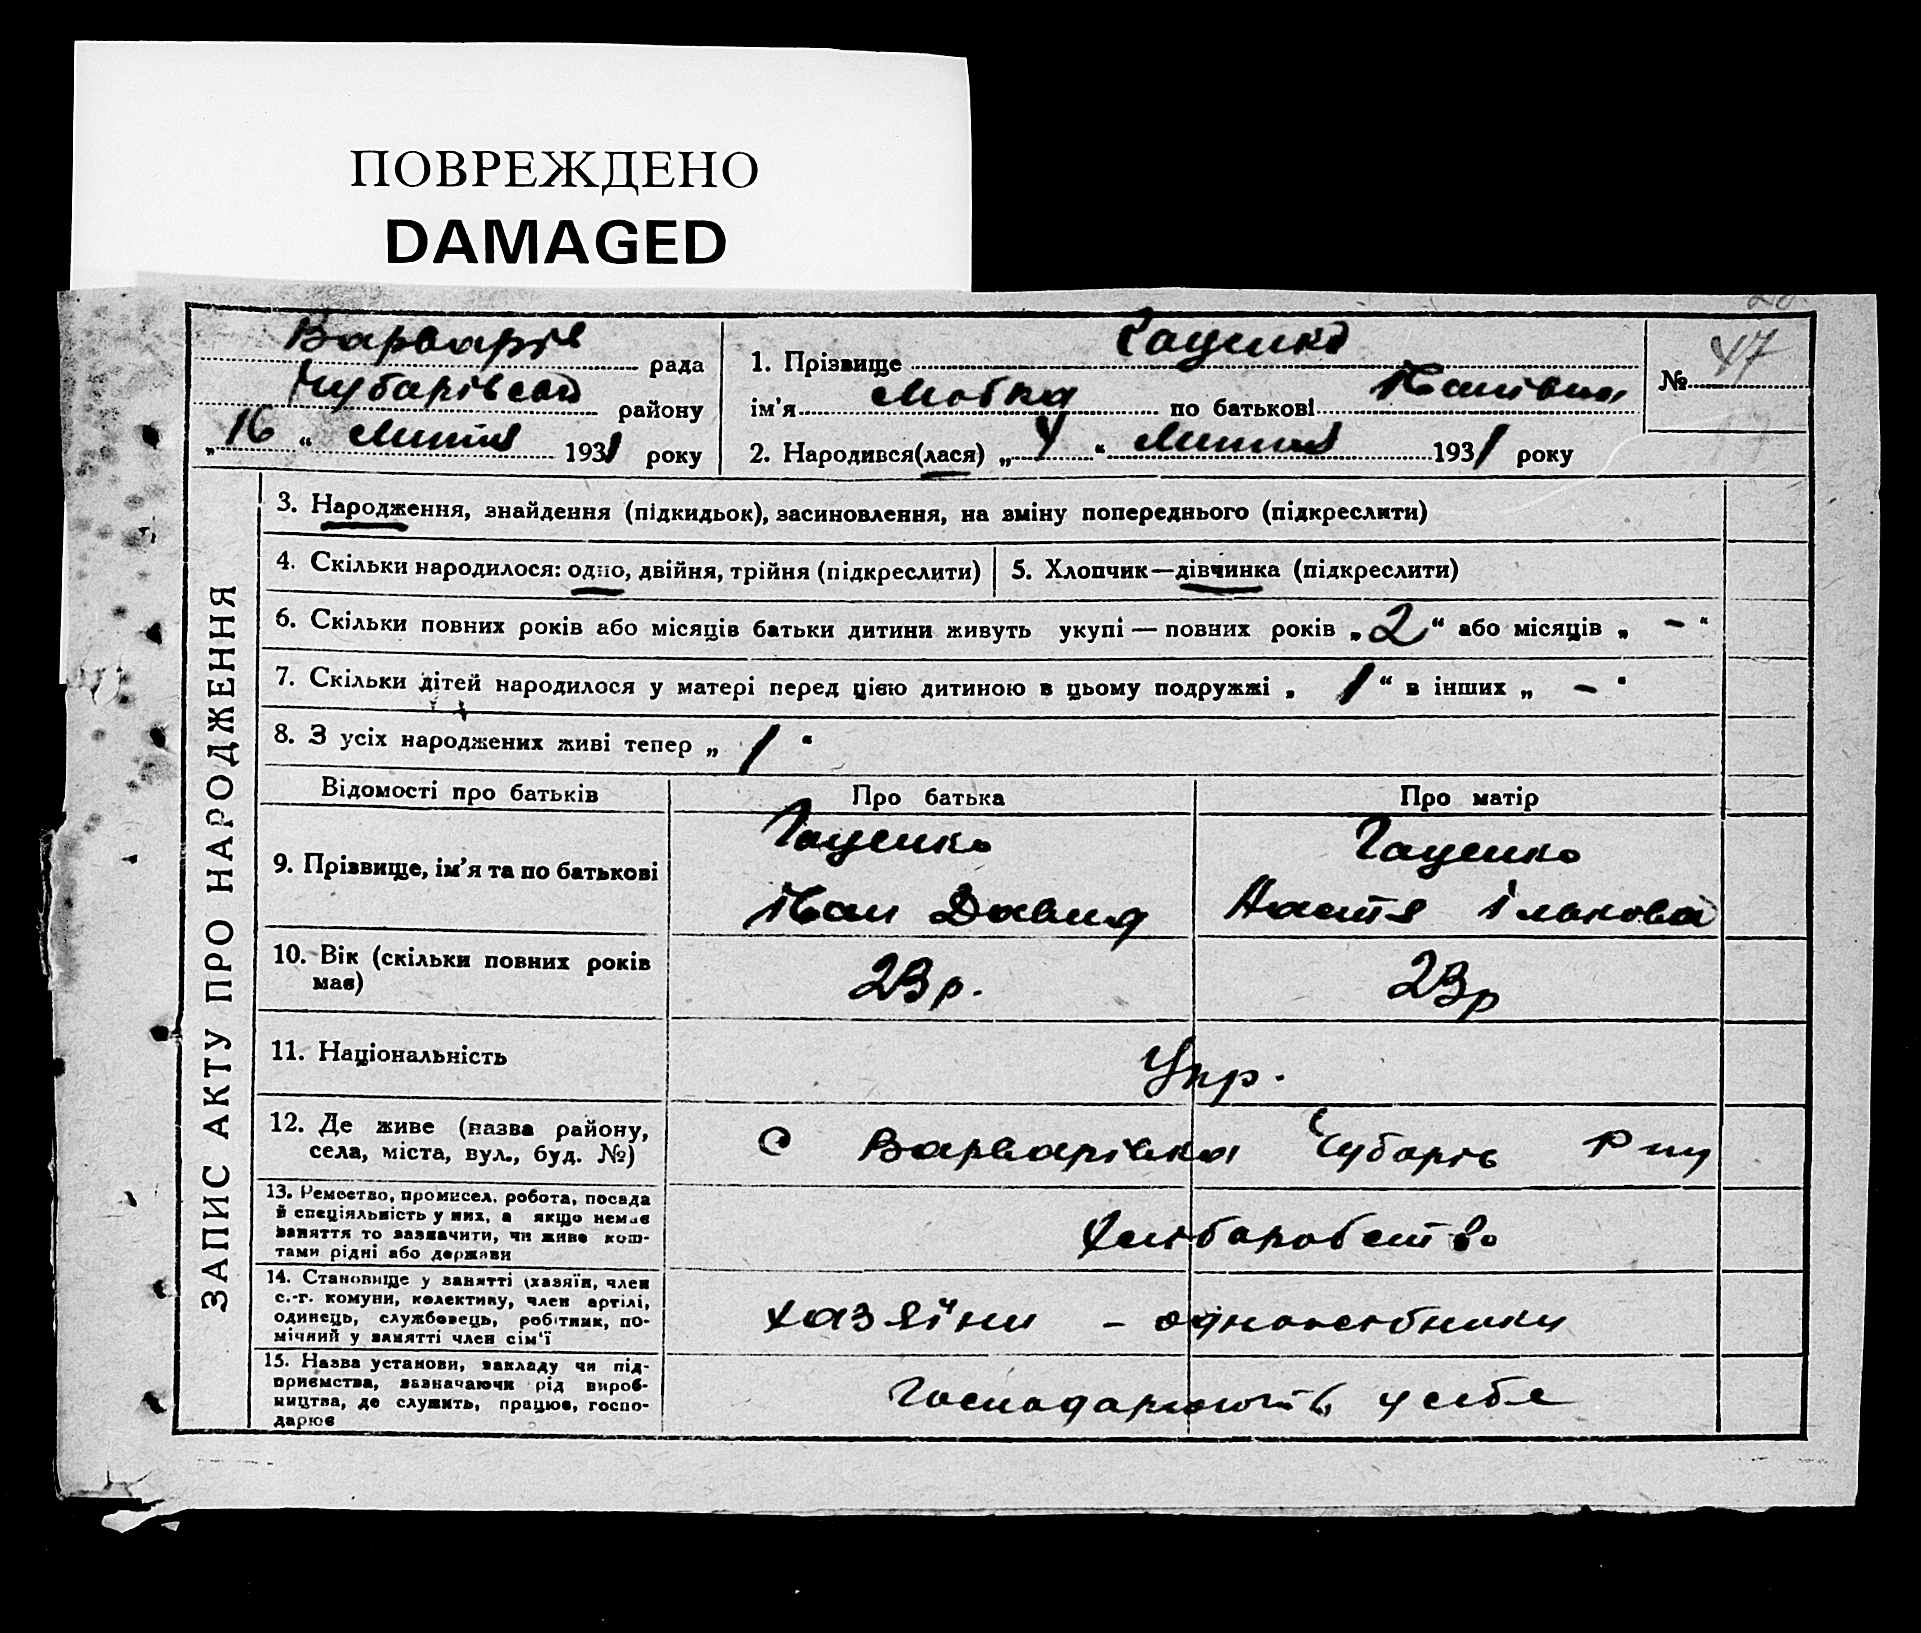 ПОВРЕЖДЕНО
DAMAGED
Варварів рада
Чубарівсой району
„16“ Липня 1931 року
1. Прізвище Гаценко
ім’я Любка по батькові Іванівна
2. Народився(лася) „4“ Липня 1931 року
№ 47
ЗАПИС АКТУ ПРО НАРОДЖЕННЯ
3. Народження, знайдення (підкидьок), засиновлення, на зміну попереднього (підкреслити)
4. Скільки народилося: одно, двійня, трійня (підкреслити)
5. Хлопчик—дівчинка (підкреслити)
6. Скільки повних років або місяців батьки дитини живуть укупі — повних років „2“ або місяців „ - “
7. Скільки дітей народилося у матері перед цією дитиною в цьому подружжі „ 1 “ в інших „ - “
8. З усіх народжених живі тепер „ 1 “
Відомості про батьків
Про батька
Про матір
9. Прізвище, ім’я та по батькові
Гаценко
Іван Давид
Гаценко
Настя Ількова
10. Вік (скільки повних років
має)
23 р.
23 р
11. Національність
Укр.
12. Де живе (назва району,
села, міста, вул., буд. №)
с Варварівка Чубарів р ну
13. Ремество, промисел, робота, посада
й спеціяльність у них, а якщо немає
заняття то зазначити, чи живе кош-
тами рідні або держави
Хліборобство
14. Становище у занятті (хазяїн, член
с.-г. комуни, колективу, член артілі,
одинець, службовець, робітник, по-
мічний у занятті член сім’ї
хазяїни - одноосібники
15. Назва установи, закладу чи під-
приємства, зазначаючи рід вироб-
ництва, де служить, працює, госпо-
дарює
Господарюють у себе